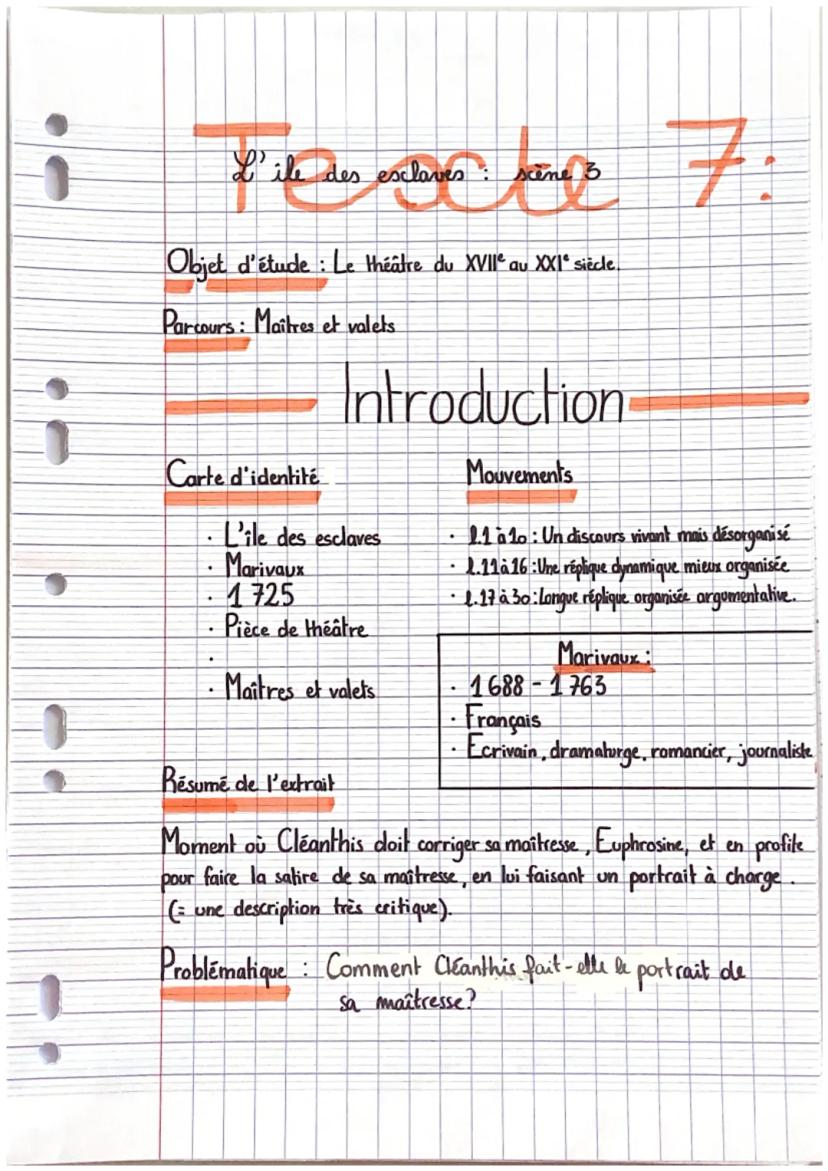 Texte 7:
L'ile des esclaves : scène 3
Objet d'étude : Le théâtre du XVIIe au XXIe siècle.
Parcours : Maîtres et valets
Introduction
Carte d'identité
· L'île des esclaves
· Marivaux
· 1725
· Pièce de théâtre
·
· Maîtres et valets
Mouvements
· l.1 à 10 : Un discours vivant mais désorganisé
· l.11 à 16 : Une réplique dynamique mieux organisée
· l.17 à 30 : Longue réplique organisée argumentative.
Marivaux :
· 1688 - 1763
· Français
· Ecrivain, dramaturge, romancier, journaliste
Résumé de l'extrait
Moment où Cléanthis doit corriger sa maîtresse, Euphrosine, et en profite
pour faire la satire de sa maîtresse, en lui faisant un portrait à charge.
(= une description très critique).
Problématique : Comment Cléanthis fait-elle le portrait de
sa maîtresse?